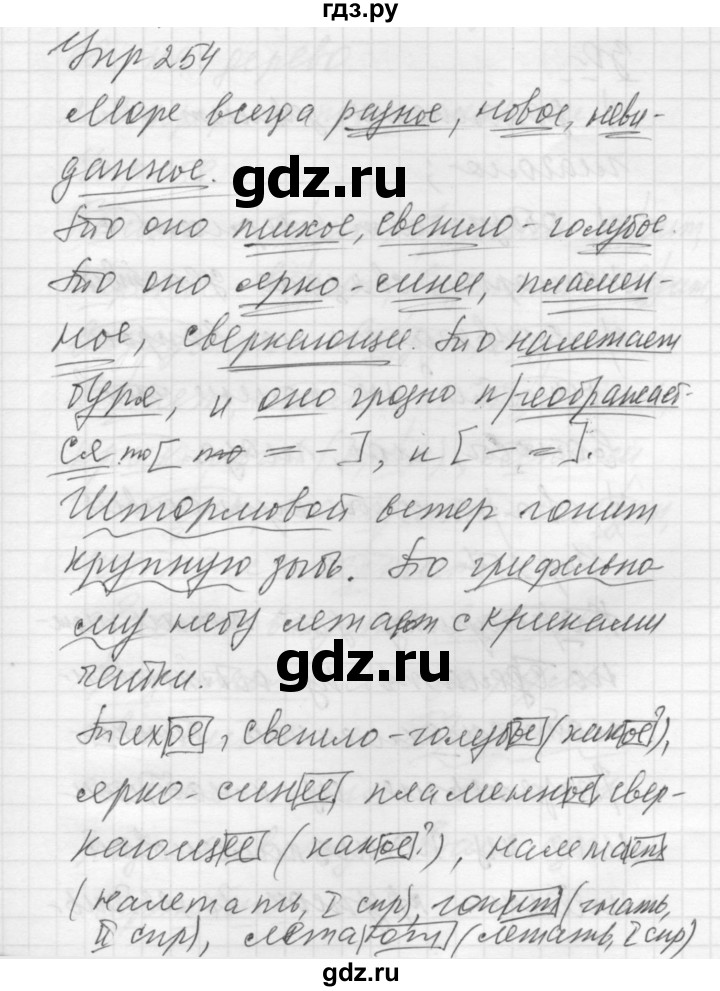 гдз.ру
Упр 254
Море всегда разное, новое, неви-
данное.
gdz.ru
То оно тихое, светло-голубое.
То оно ярко-синее, пламен-
ное, сверкающее. То налетает
буря, и оно грозно преображает-
ся. то [ то = - ], и [ - = ].
Штормовой ветер гонит
крупную зыбь. По грифельно-
му небу летают с криками
gdz.ru
чайки.
Тихое, светло-голубое (какое?),
ярко-синее пламенное, свер-
кающее (какое?), налетает
(налетать, I спр), гонит (гнать,
II спр), летают (летать, I спр)
gdz.ru